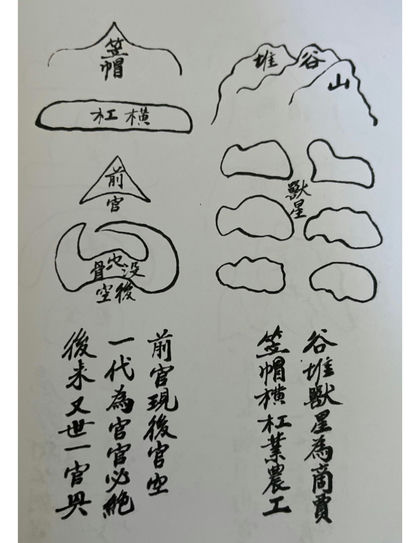 谷堆山
獸星
笠帽
橫杠
前官
没後
穴
骨空
谷堆獸星為商賈
笠帽橫杠業農工
前官現後官空
一代為官官必絕
後未又世一官